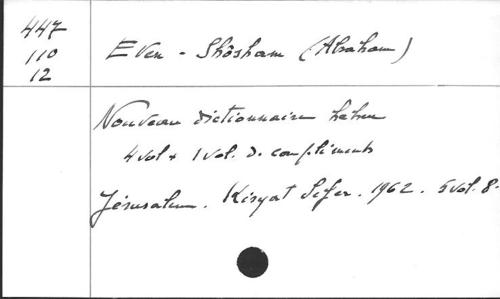 447
110
12
Even - Shôsham (Abraham)
Nouveau dictionnaire hébreu
4 vol + 1 vol. de compliments
Jérusalem. Kiryat Sefer. 1962. 5 vol. 8-